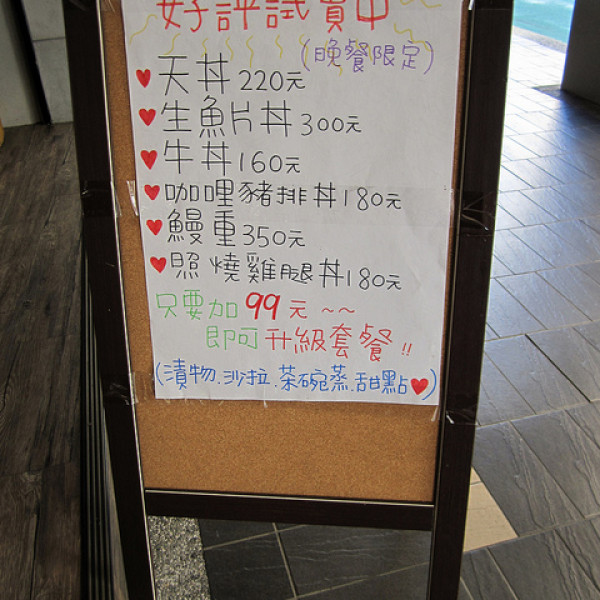 好評試賣中
(晚餐限定)
♥天丼220元
♥生魚片丼300元
♥牛丼160元
♥咖哩豬排丼180元
♥鰻重350元
♥照燒雞腿丼180元
只要加99元~~
即可升級套餐!!
(漬物.沙拉.茶碗蒸.甜點♥)